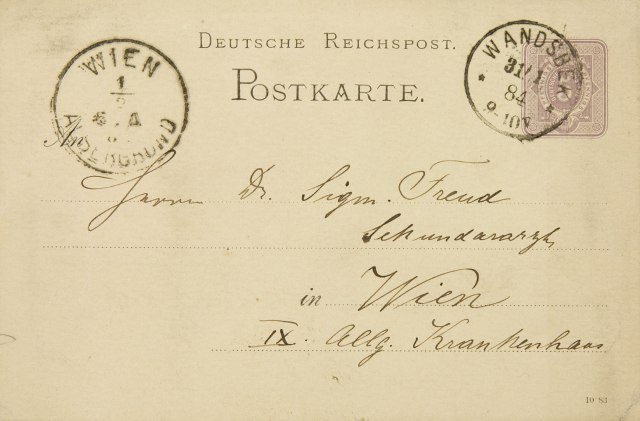 DEUTSCHE REICHSPOST.
POSTKARTE.
WIEN
1
2
ALSERGRUND
WANDSBEK
31/1
84
9-10V
An
Herrn Dr. Sigm. Freud
Sekundararzt
in Wien
IX. Allg. Krankenhaus
10 83